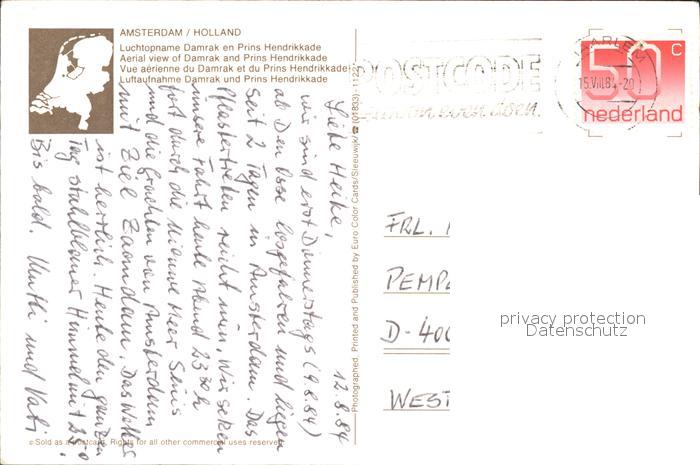 AMSTERDAM / HOLLAND
Luchtopname Damrak en Prins Hendrikkade
Aerial view of Damrak and Prins Hendrikkade
Vue aérienne du Damrak et du Prins Hendrikkade
Luftaufnahme Damrak und Prins Hendrikkade
POSTCODE
HAARLEM
15.VIII.84-20
50 C
nederland
12.8.84
Liebe Heike,
wir sind erst Donnerstags (9.8.84)
ab Den Osse losgefahren und liegen
seit 2 Tagen in Amsterdam. Das
Pflastertreten reicht nun. Wir setzen
unsere Fahrt heute Abend 23 30 h
fort durch die Nieuwe Meer
und die Grachten von Amsterdam
mit Ziel Zaandam. Das Wetter
ist herrlich. Heute den ganzen
Tag stahlblauer Himmel mit
Bis bald. Mutti und Vati
Photographed, Printed and Published by Euro Color Cards/Sleeuwijk/☎ (01833)-1122
FRL.
PEMP
D-400
WEST
privacy protection
Datenschutz
© Sold as a postcard. Rights for all other commercial uses reserved